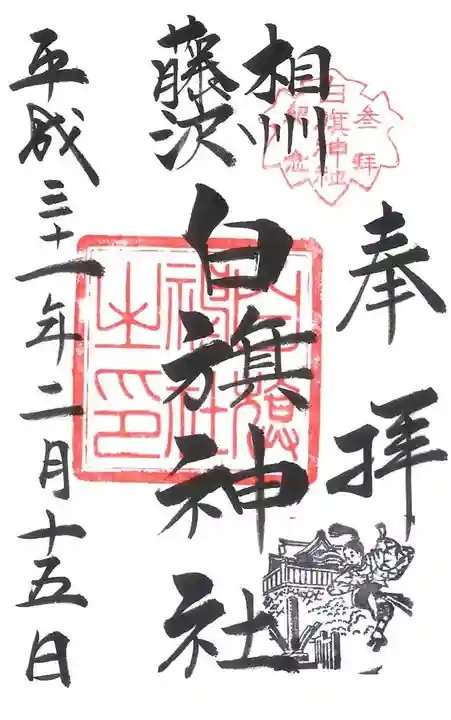 奉拝
相州
藤沢
白旗神社
平成三十一年二月十五日
参拝
白旗神社
記念
白旗神社之印